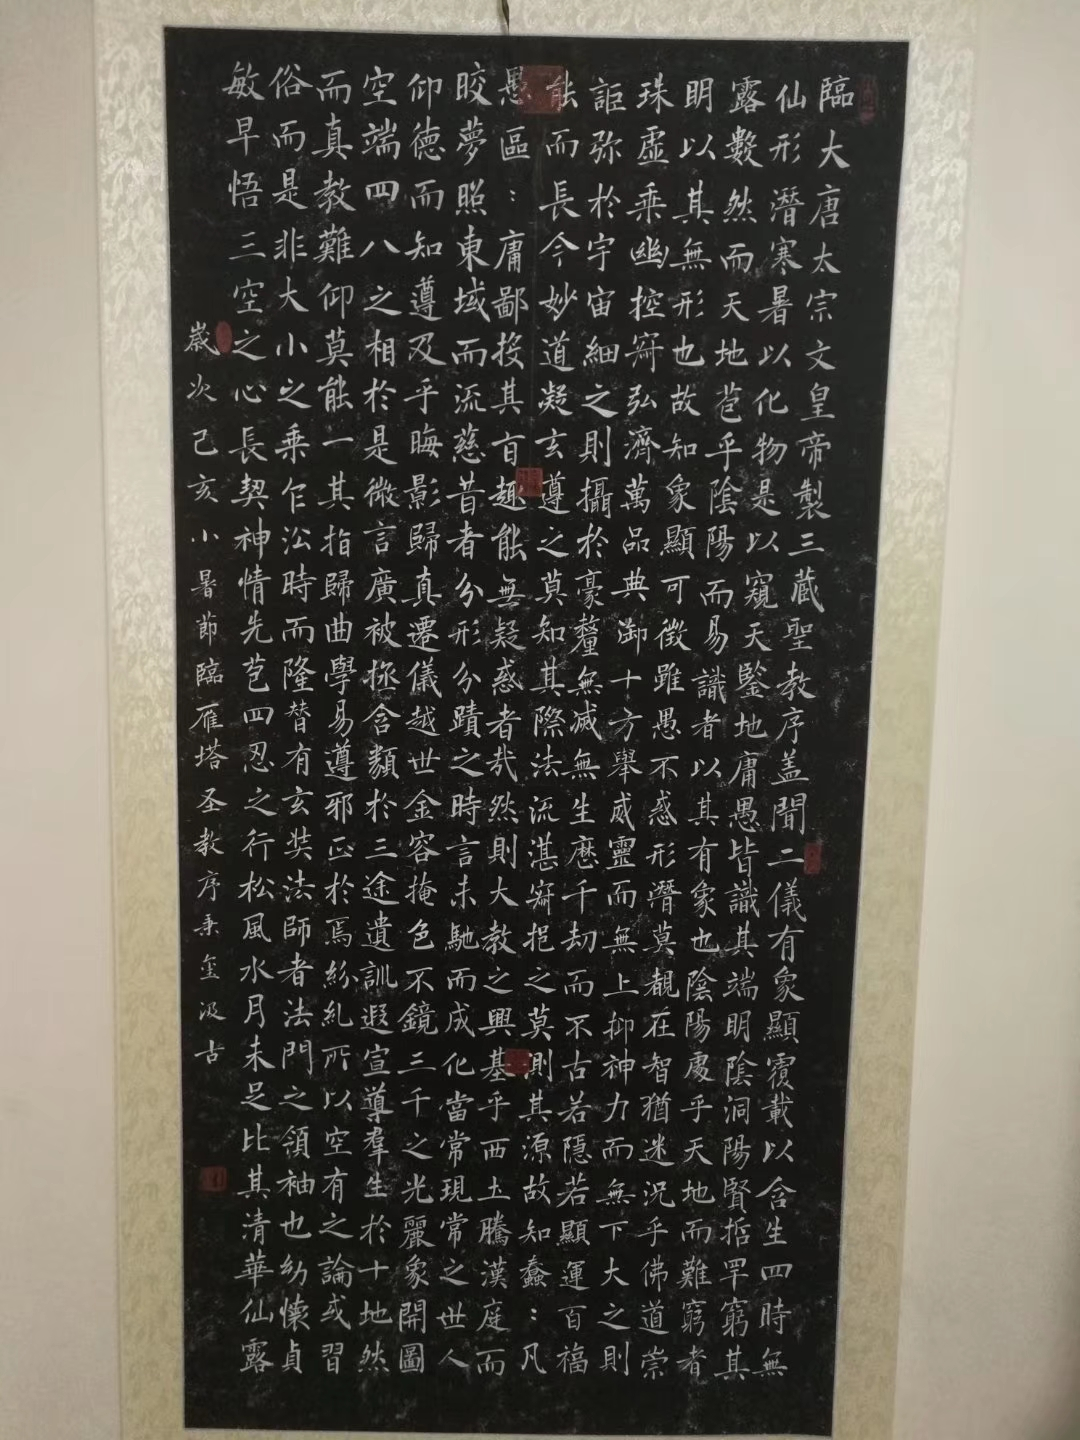 臨大唐太宗文皇帝製三藏聖教序盖聞二儀有象顯覆載以含生四時無
仙形潛寒暑以化物是以窺天鑒地庸愚皆識其端明陰洞陽賢哲罕窮其
露數然而天地苞乎陰陽而易識者以其有象也陰陽處乎天地而難窮者
明以其無形也故知象顯可徵雖愚不惑形潛莫覩在智猶迷況乎佛道崇
珠虛乘幽控寂弘濟萬品典御十方舉威靈而無上抑神力而無下大之則
詎弥於宇宙細之則攝於豪釐無滅無生歷千劫而不古若隱若顯運百福
能而長今妙道凝玄遵之莫知其際法流湛寂挹之莫測其源故知蠢：凡
愚區：庸鄙投其旨趣能無疑惑者哉然則大教之興基乎西土騰漢庭而
晈夢照東域而流慈昔者分形分蹟之時言未馳而成化當常現常之世人
仰德而知遵及乎晦影歸真遷儀越世金容掩色不鏡三千之光麗象開圖
空端四八之相於是微言廣被拯含類於三途遺訓遐宣導羣生於十地然
而真教難仰莫能一其指歸曲學易遵邪正於焉紛糺所以空有之論或習
俗而是非大小之乘乍沿時而隆替有玄奘法師者法門之領袖也幼懷貞
敏早悟三空之心長契神情先苞四忍之行松風水月未足比其清華仙露
歲次己亥小暑節臨雁塔圣教序秉汲古